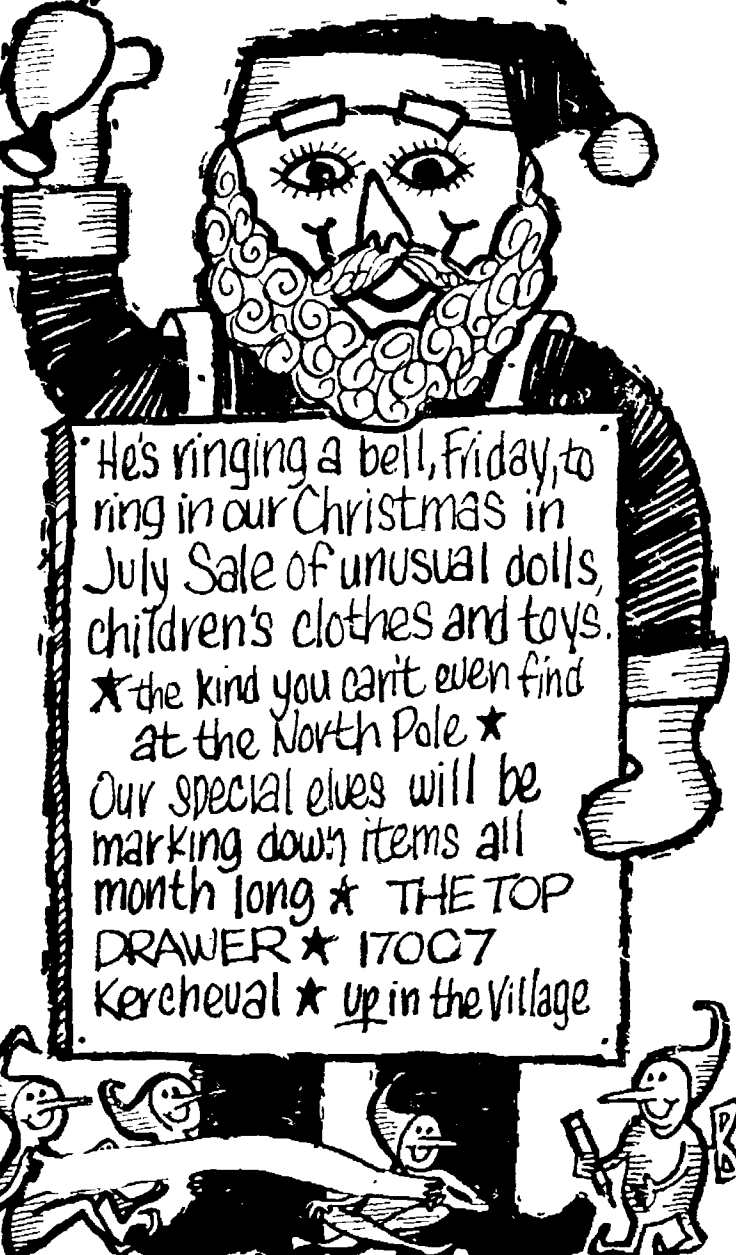 He's ringing a bell, Friday, to
ring in our Christmas in
July Sale of unusual dolls,
children's clothes and toys.
★ the kind you can't even find
at the North Pole ★
Our special elves will be
marking down items all
month long ★ THE TOP
DRAWER ★ 17007
Kercheval ★ up in the Village
B